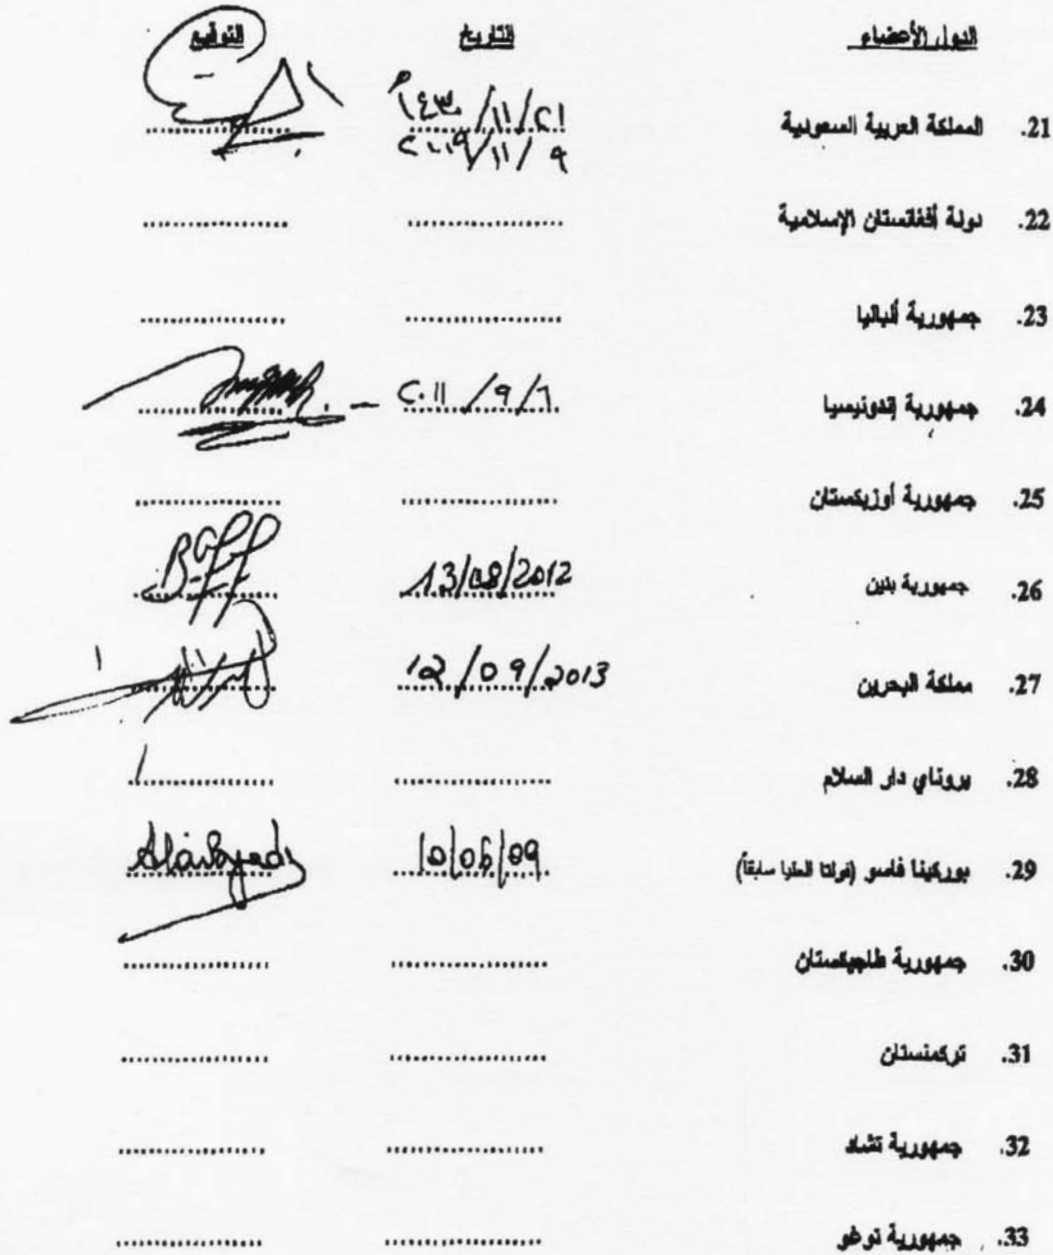 الدول الأعضاء التاريخ التوقيع
21. المملكة العربية السعودية ١٤٣٠/١١/٢١
٢٠٠٩/١١/٩
22. دولة أفغانستان الإسلامية
23. جمهورية ألبانيا
24. جمهورية إندونيسيا ٢٠١١/٩/٦
25. جمهورية أوزبكستان
26. جمهورية بنين 13/08/2012
27. مملكة البحرين 12/09/2013
28. بروناي دار السلام
29. بوركينا فاسو (فولتا العليا سابقاً) 10/06/09
30. جمهورية طاجيكستان
31. تركمنستان
32. جمهورية تشاد
33. جمهورية توغو